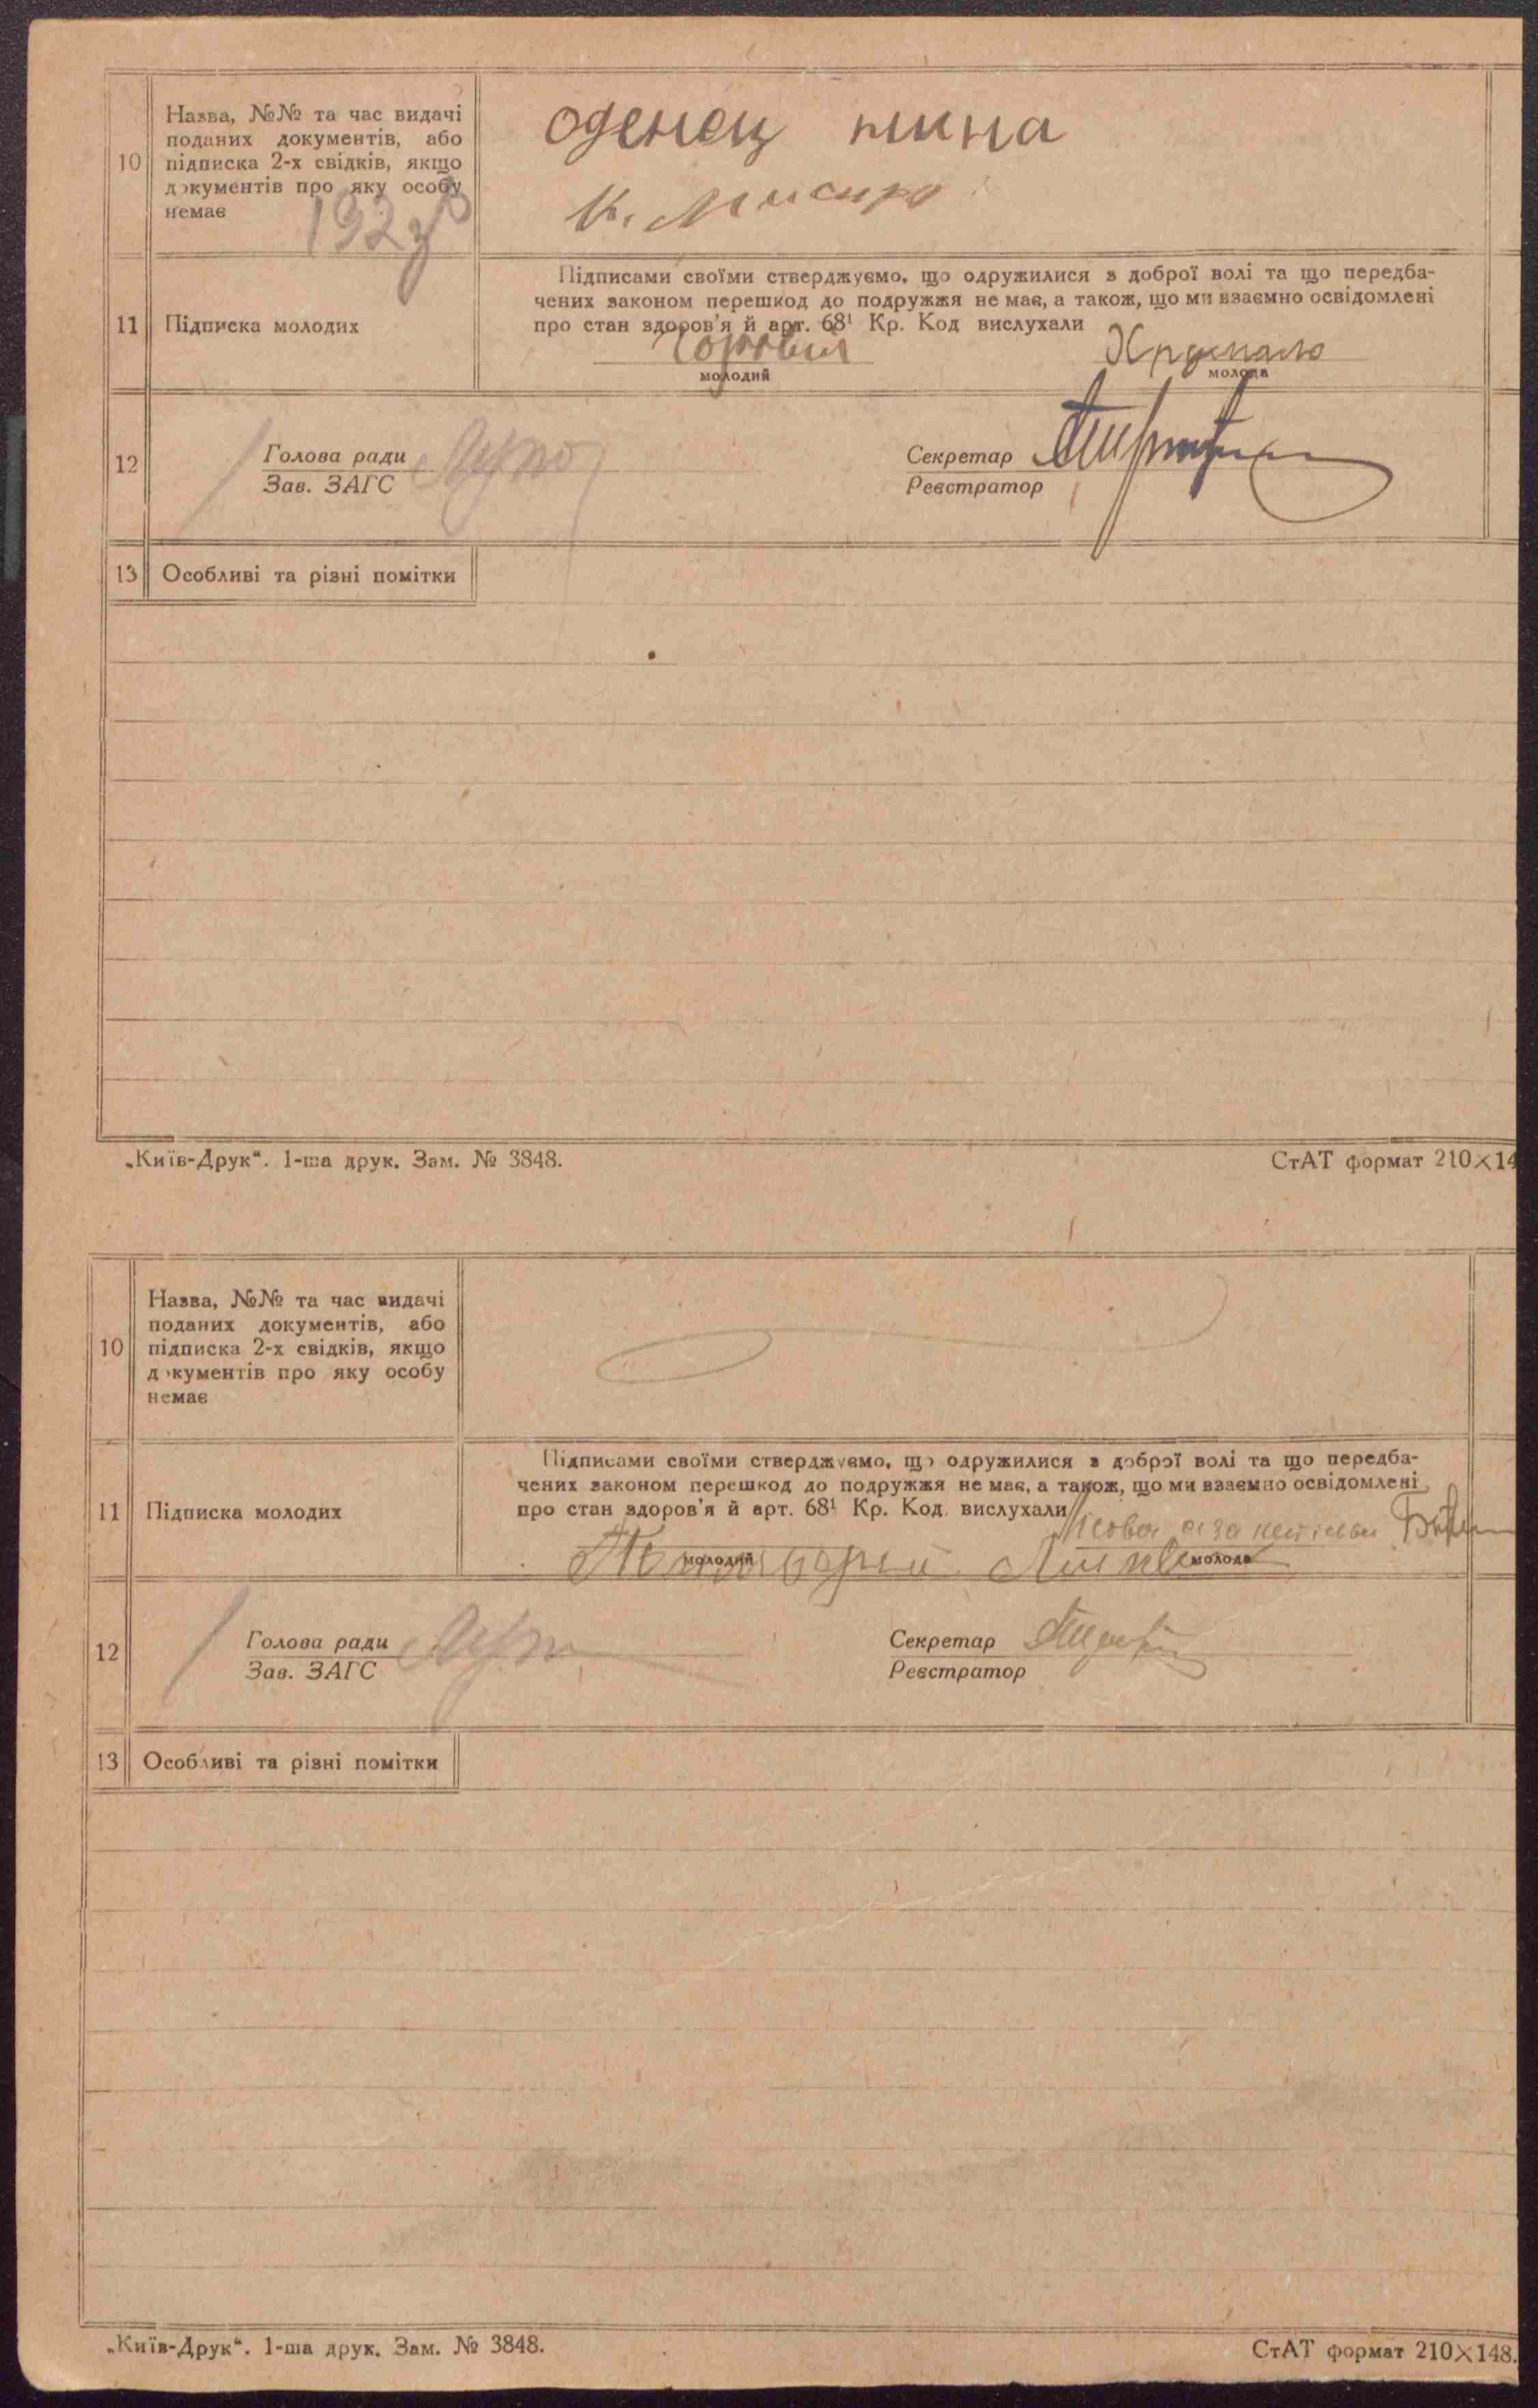 10
Назва, №№ та час видачі
поданих документів, або
підписка 2-х свідків, якщо
документів про яку особу
немає
оденец
11
Підписка молодих
Підписами своїми стверджуємо, що одружилися з доброї волі та що передба-
чених законом перешкод до подружжя не має, а також, що ми взаємно освідомлені
про стан здоров'я й арт. 68¹ Кр. Код вислухали
молодий
молода
12
Голова ради
Зав. ЗАГС
Секретар
Реєстратор
13
Особливі та різні помітки
„Київ-Друк“. 1-ша друк. Зам. № 3848.
СтАТ формат 210×14
10
Назва, №№ та час видачі
поданих документів, або
підписка 2-х свідків, якщо
документів про яку особу
немає
11
Підписка молодих
Підписами своїми стверджуємо, що одружилися з доброї волі та що передба-
чених законом перешкод до подружжя не має, а також, що ми взаємно освідомлені
про стан здоров'я й арт. 68¹ Кр. Код. вислухали
молодий
молода
12
Голова ради
Зав. ЗАГС
Секретар
Реєстратор
13
Особливі та різні помітки
„Київ-Друк“. 1-ша друк. Зам. № 3848.
СтАТ формат 210×148.